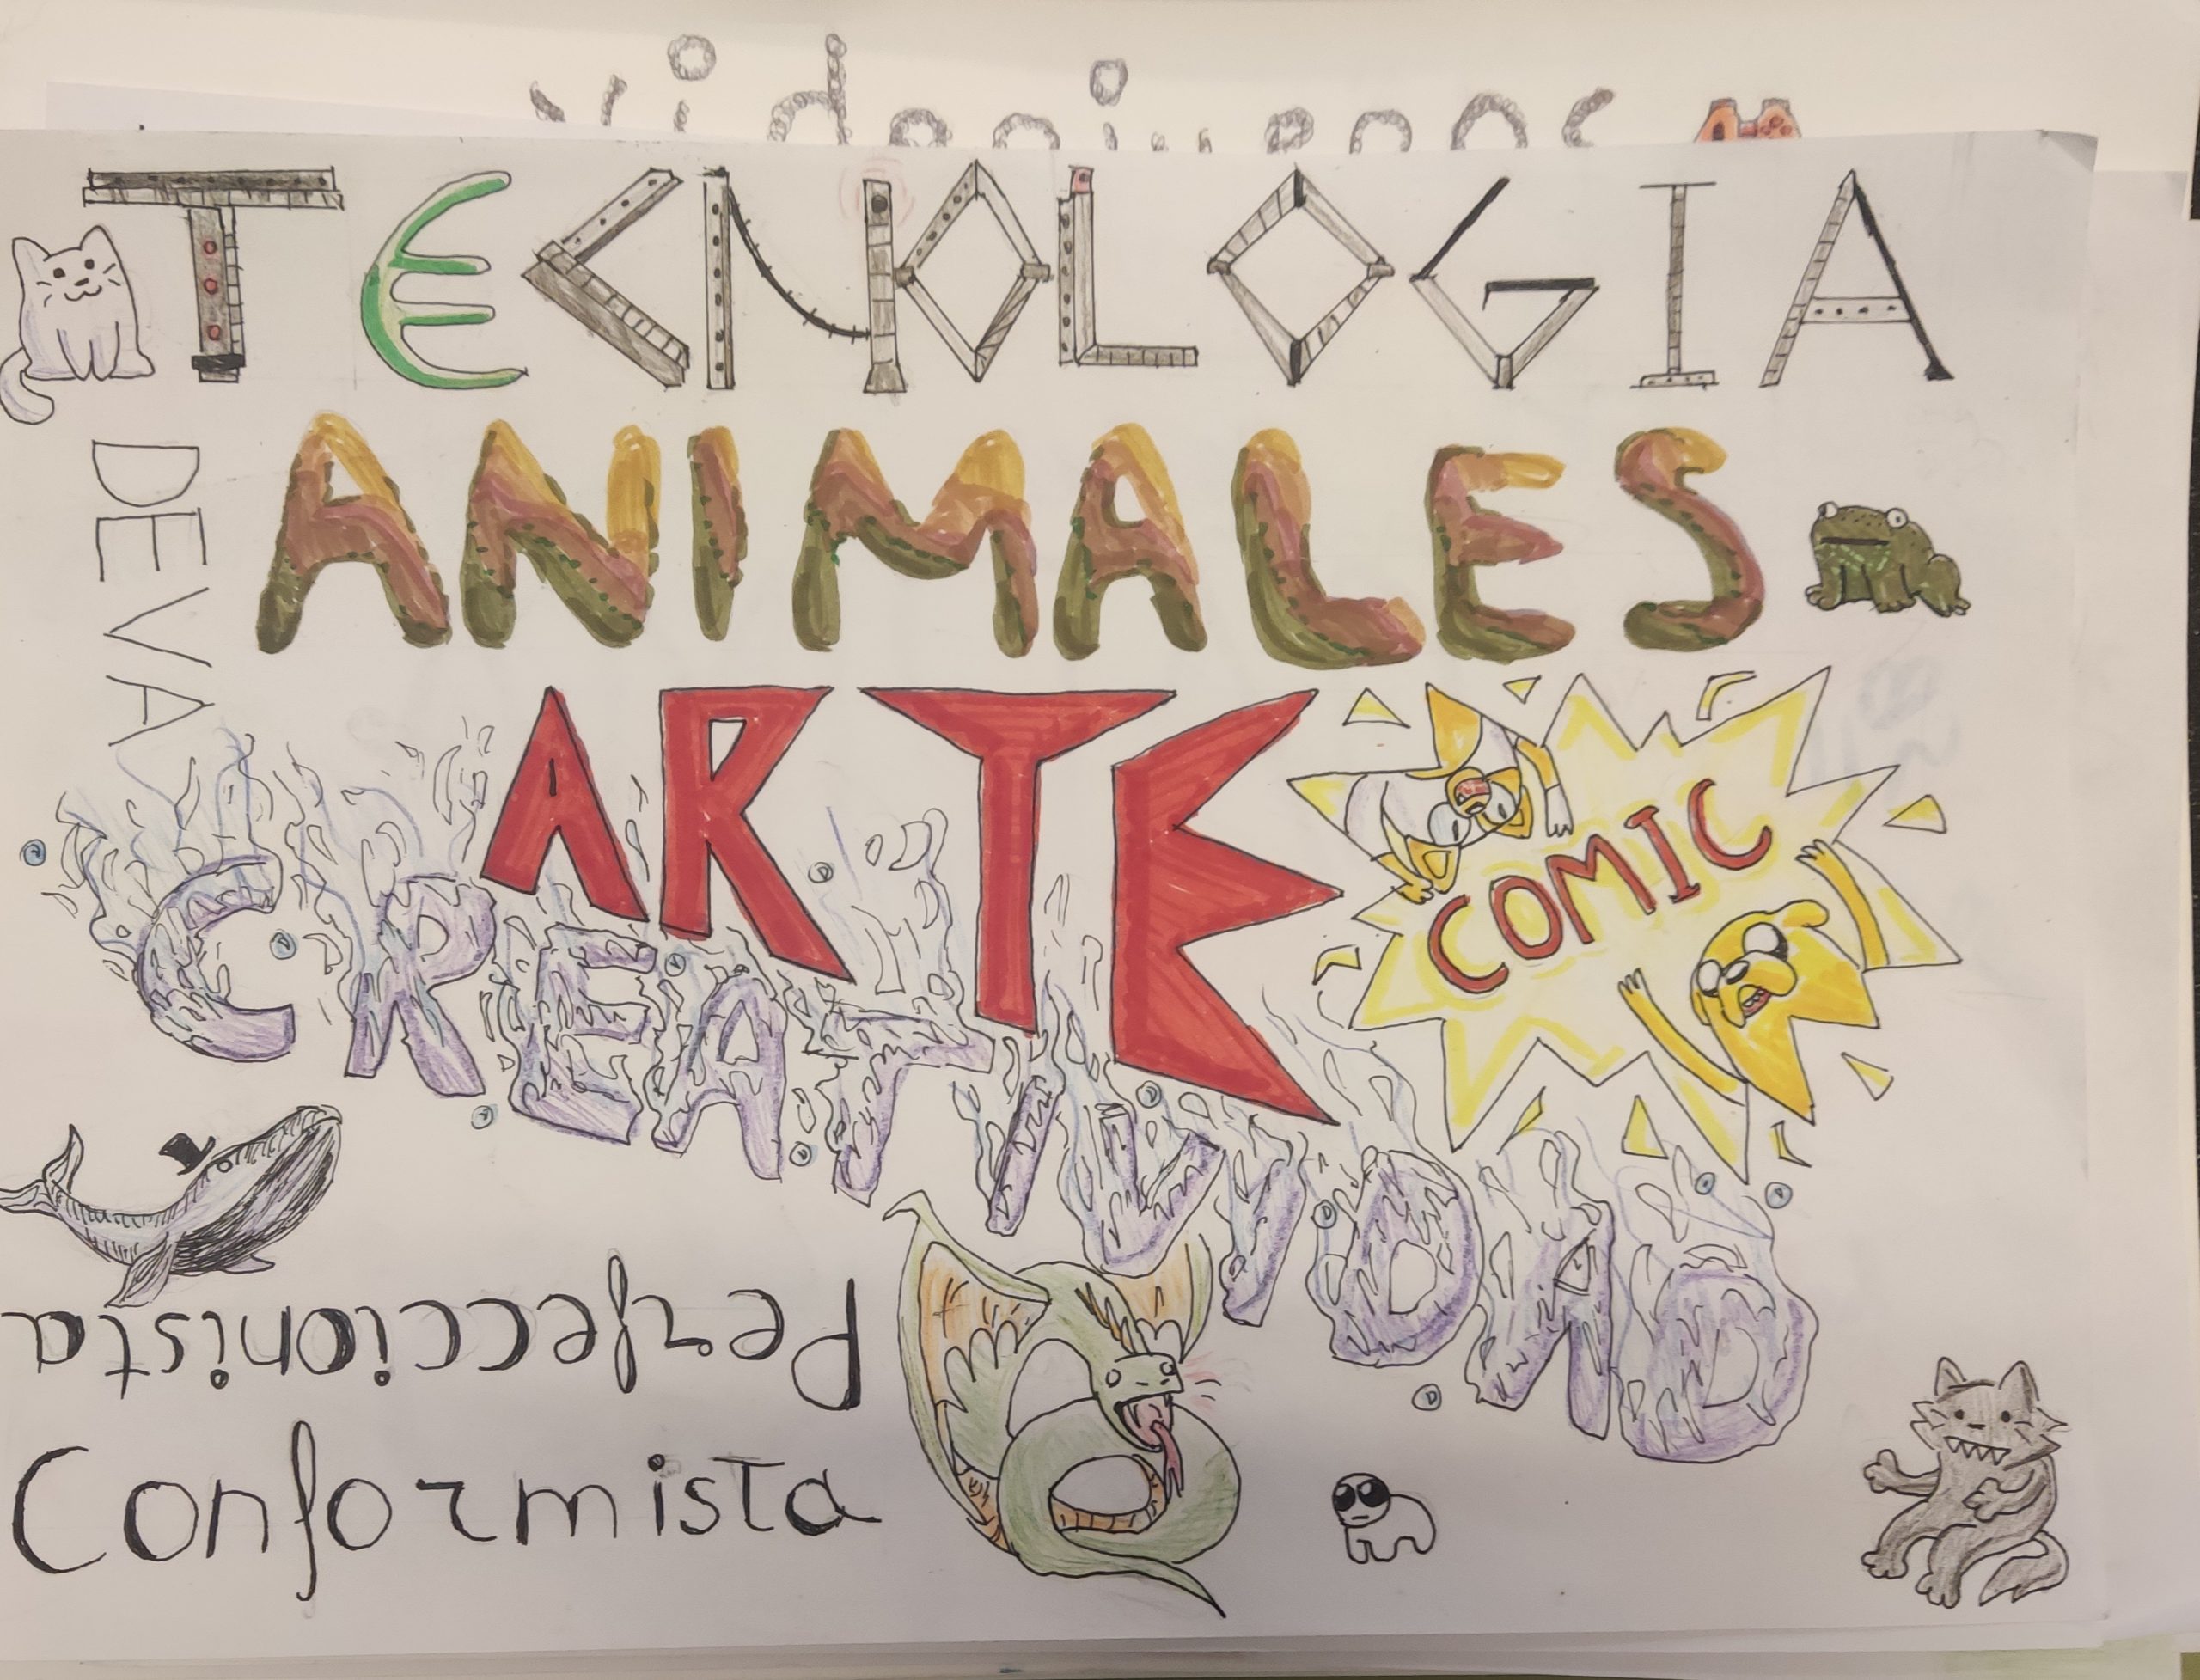 videojuegos
TECNOLOGIA
DEVA
ANIMALES
ARTE
COMIC
CREATIVIDAD
Perfeccionista
Conformista